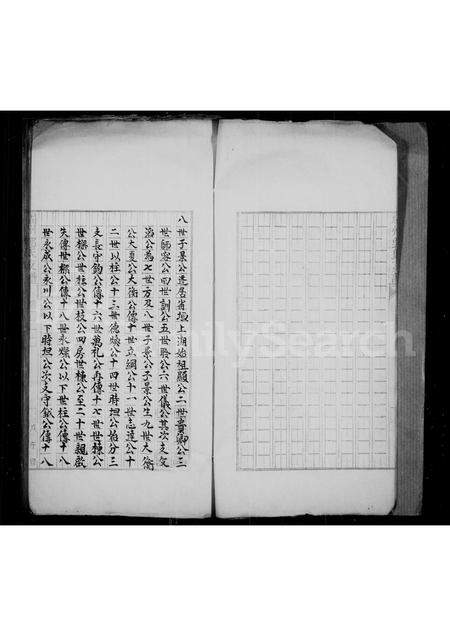 八世子景公遷居省垣上湖始祖顯公二世貴卿公三
世師容公四世訓公五世駁公六世儀公其次支文
滔公為七世方及八世子景公子景公生九世大衡
公大夏公大衡公傳十世立綱公十一世志達公十
二世以柱公十三世德燦公十四世時坦公始分三
支長守鈞公傳十六世萬札公再傳十七世世棟公
世樑公世柱公世枝公四房世棟公至二十世親敬
失傳世樑公傳十八世永燦公以下世柱公傳十八
世永成公永川公以下時坦公次支守鉞公傳十八
FamilySearch